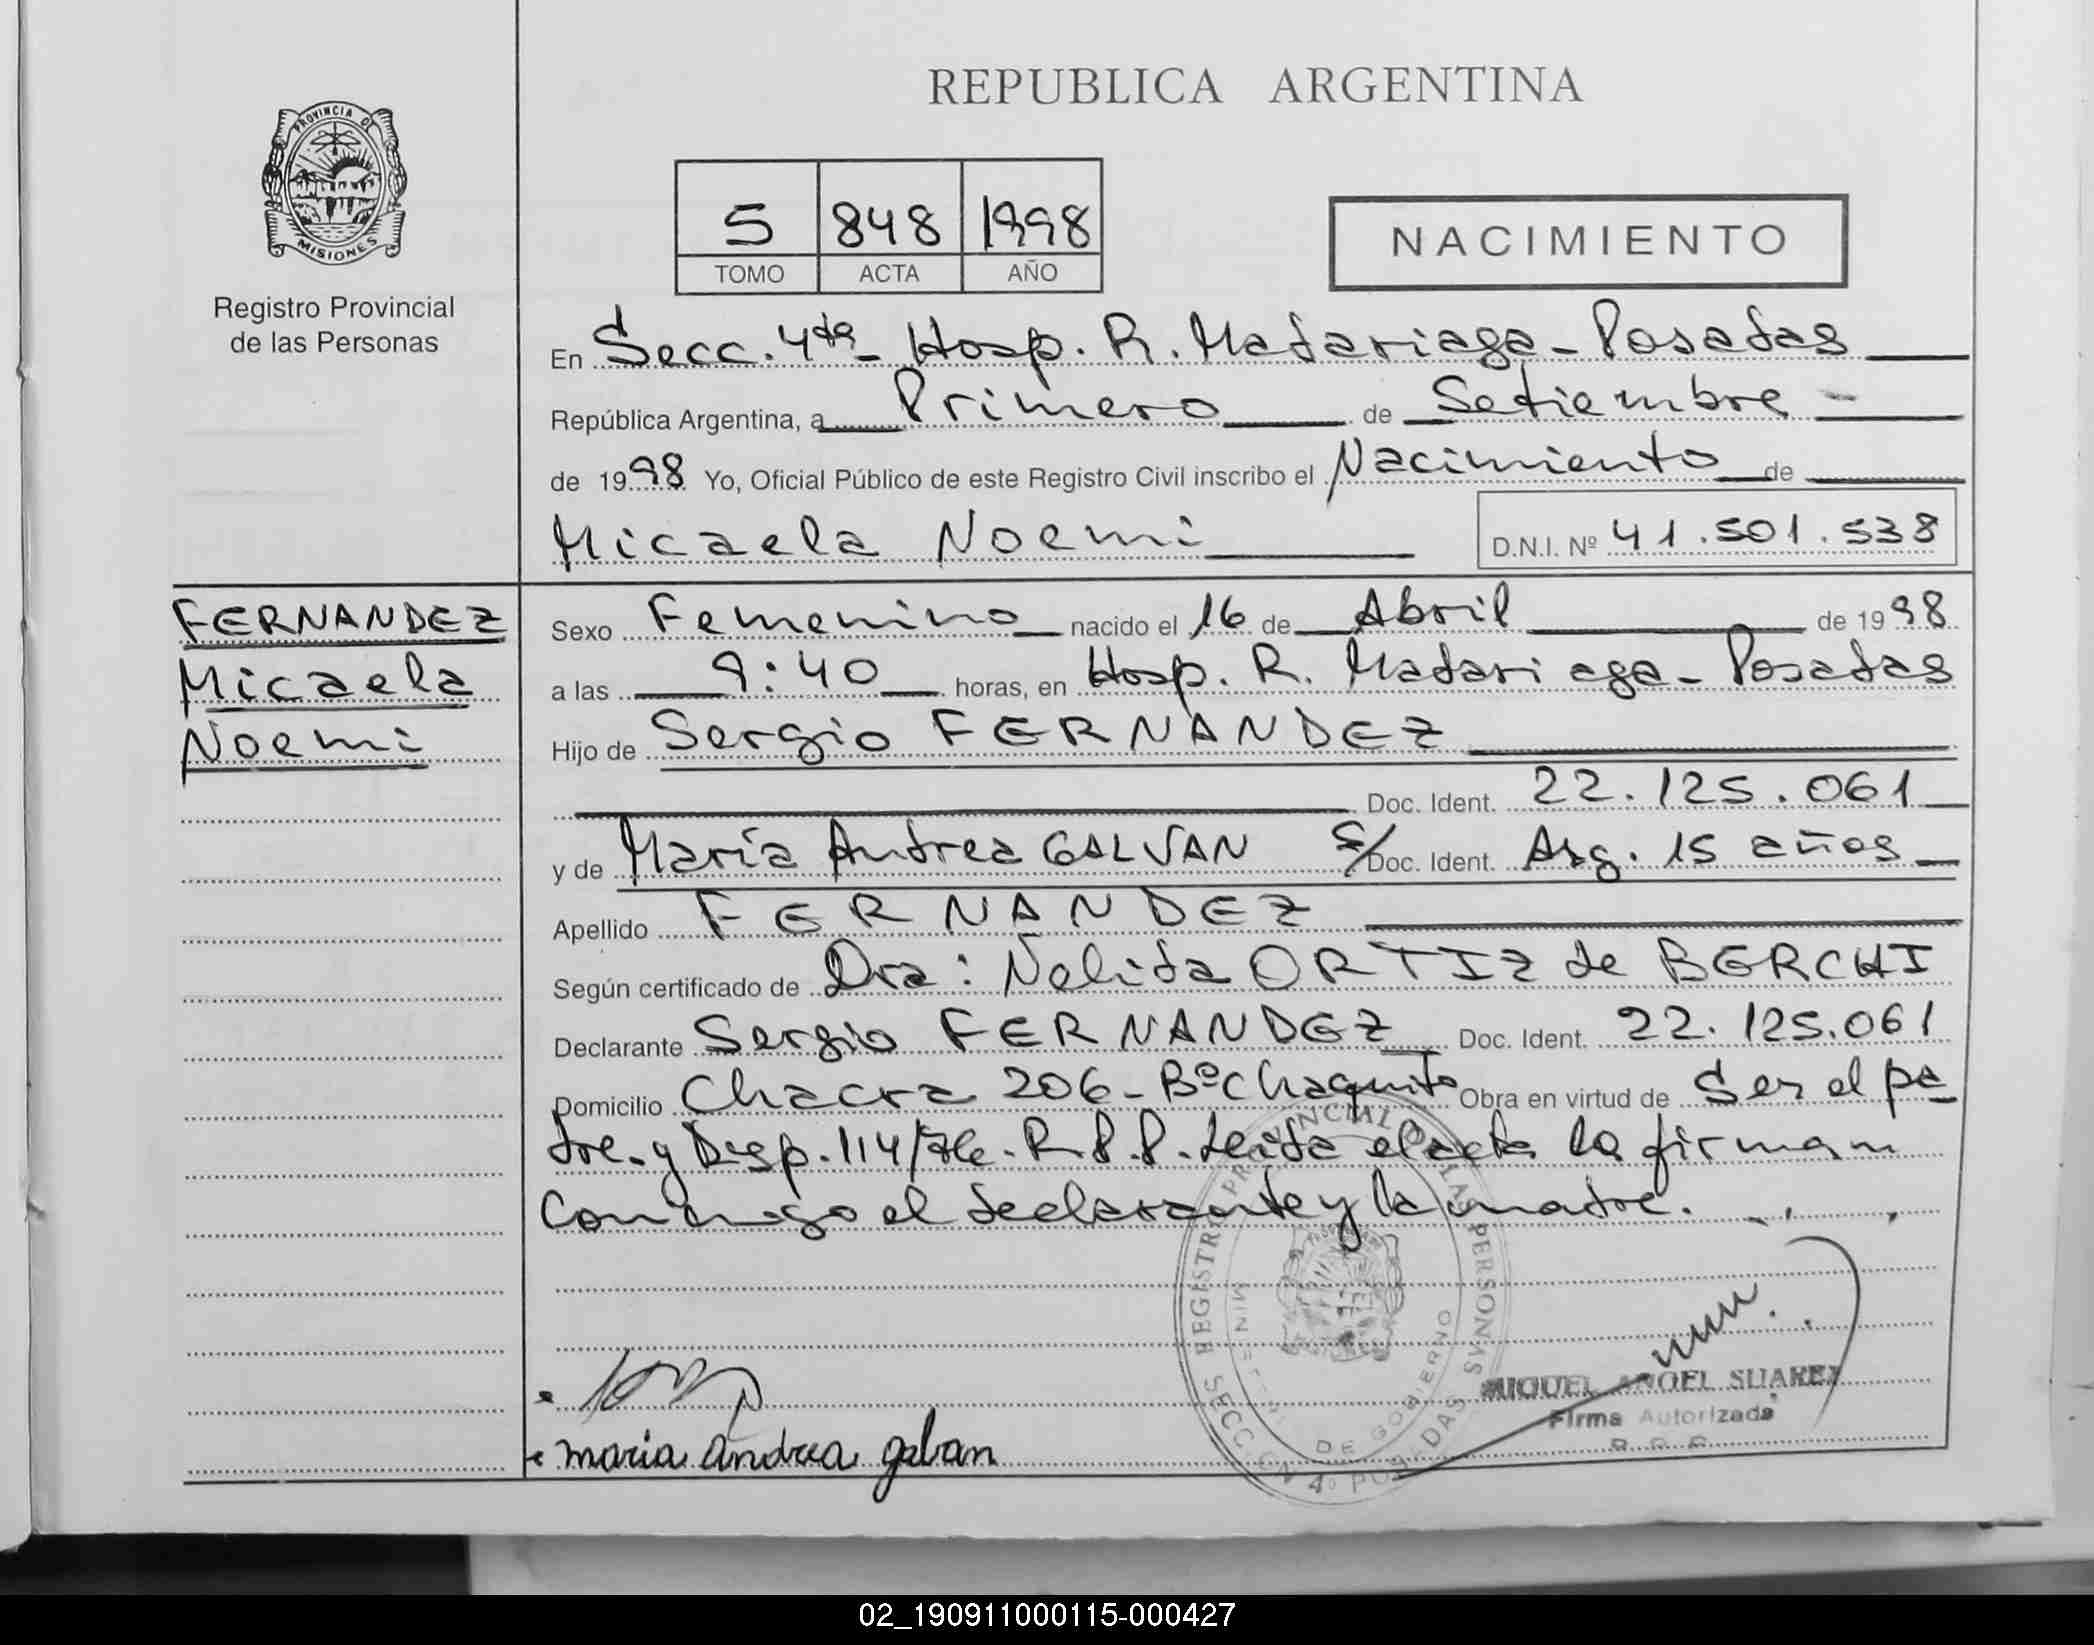 REPUBLICA ARGENTINA
PROVINCIA DE
MISIONES
Registro Provincial
de las Personas
5 848 1998
TOMO ACTA AÑO
NACIMIENTO
En Secc. 4ta - Hosp. R. Madariaga - Posadas
República Argentina, a Primero de Setiembre
de 1998 Yo, Oficial Público de este Registro Civil inscribo el Nacimiento de
Micaela Noemi D.N.I. Nº 41.501.538
FERNANDEZ
Micaela
Noemi
Sexo Femenino nacido el 16 de Abril de 1998
a las 9:40 horas, en Hosp. R. Madariaga - Posadas
Hijo de Sergio FERNANDEZ
Doc. Ident. 22.125.061
y de María Andrea GALVAN s/Doc. Ident. Arg. 15 años
Apellido FERNANDEZ
Según certificado de Dra: Nelida ORTIZ de BERCHI
Declarante Sergio FERNANDEZ Doc. Ident. 22.125.061
Domicilio Chacra 206 - Bº Chaquito Obra en virtud de Ser el pa
dre. y Disp. 114/ R.P.P. Leida el acta la firman
conmigo el declarante y la madre.
REGISTRO PROVINCIAL DE LAS PERSONAS
DE GOBIERNO
MIGUEL ANGEL SUAREZ
Firma Autorizada
maria andrea galvan
02_190911000115-000427